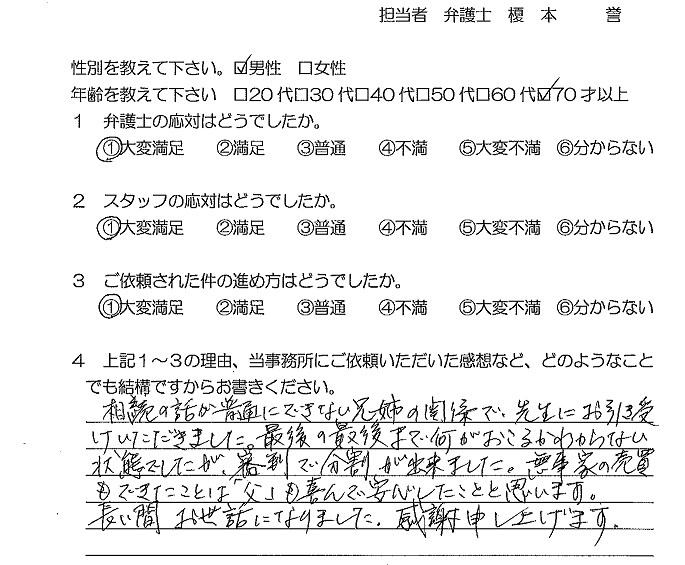 担当者 弁護士 榎 本 誉
性別を教えて下さい。☑男性 □女性
年齢を教えて下さい □20代□30代□40代□50代□60代☑70才以上
1 弁護士の応対はどうでしたか。
①大変満足 ②満足 ③普通 ④不満 ⑤大変不満 ⑥分からない
2 スタッフの応対はどうでしたか。
①大変満足 ②満足 ③普通 ④不満 ⑤大変不満 ⑥分からない
3 ご依頼された件の進め方はどうでしたか。
①大変満足 ②満足 ③普通 ④不満 ⑤大変不満 ⑥分からない
4 上記1~3の理由、当事務所にご依頼いただいた感想など、どのようなこと
でも結構ですからお書きください。
相続の話が普通にできない兄姉の関係で、先生にお引き受
けいただきました。最後の最後まで何がおこるかわからない
状態でしたが、審判で分割が出来ました。無事家の売買
もできたことは「父」も喜んで安心したことと思います。
長い間お世話になりました。感謝申し上げます。